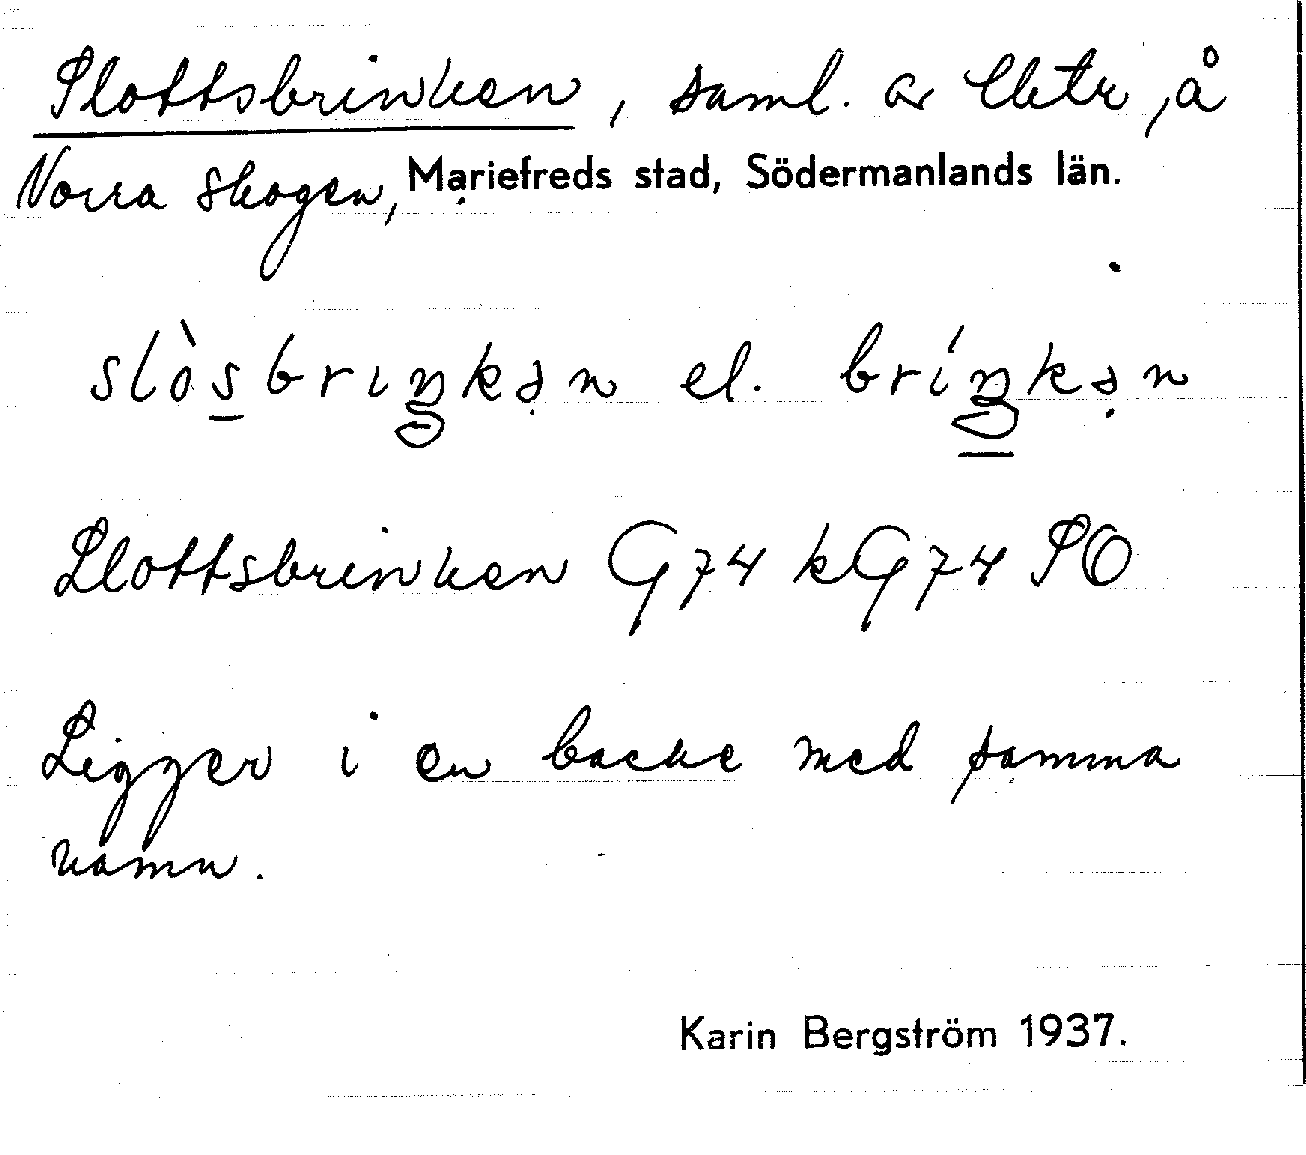 Slottsbrinken, saml. av lhtr, å
Norra Skogen, Mariefreds stad, Södermanlands län.
slòsbrıŋkən el. bríŋkən
Slottsbrinken G74 kG74 SO
Ligger i en backe med samma
namn.
Karin Bergström 1937.